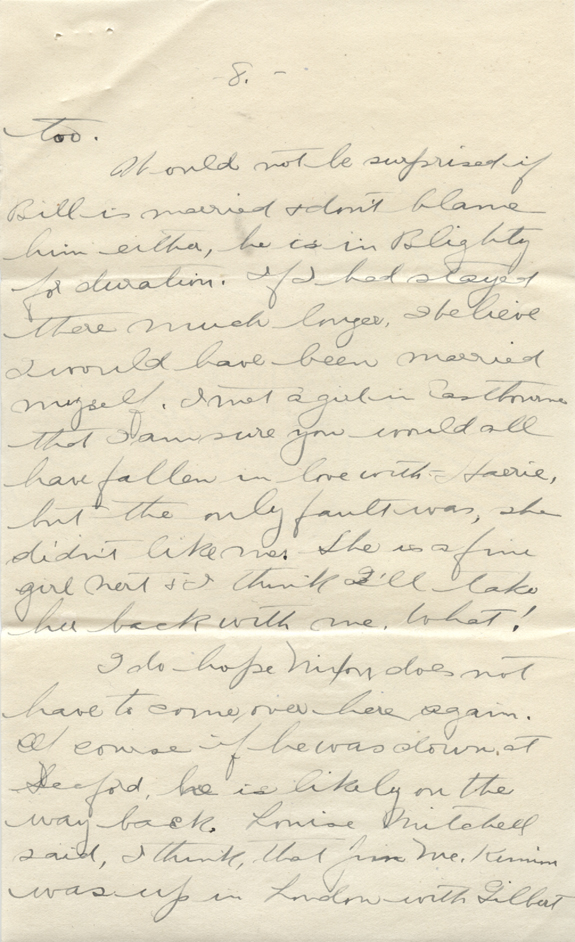 - 8. -
too.
Would not be surprised if
Bill is married & don't blame
him either, he is in Blighty
for duration. If I had stayed
there much longer, I believe
I would have been married
myself. I met a girl in Eastbourne
that I am sure you would all
have fallen in love with -
but the only fault was, she
didn't like me. She is a fine
girl Nert & I think I'll take
her back with me. What!
I do hope Nixon does not
have to come over here again.
Of course if he was down at
Seaford, he is likely on the
way back. Louise Mitchell
said, I think, that Jim Mc.
was up in London with Gilbert